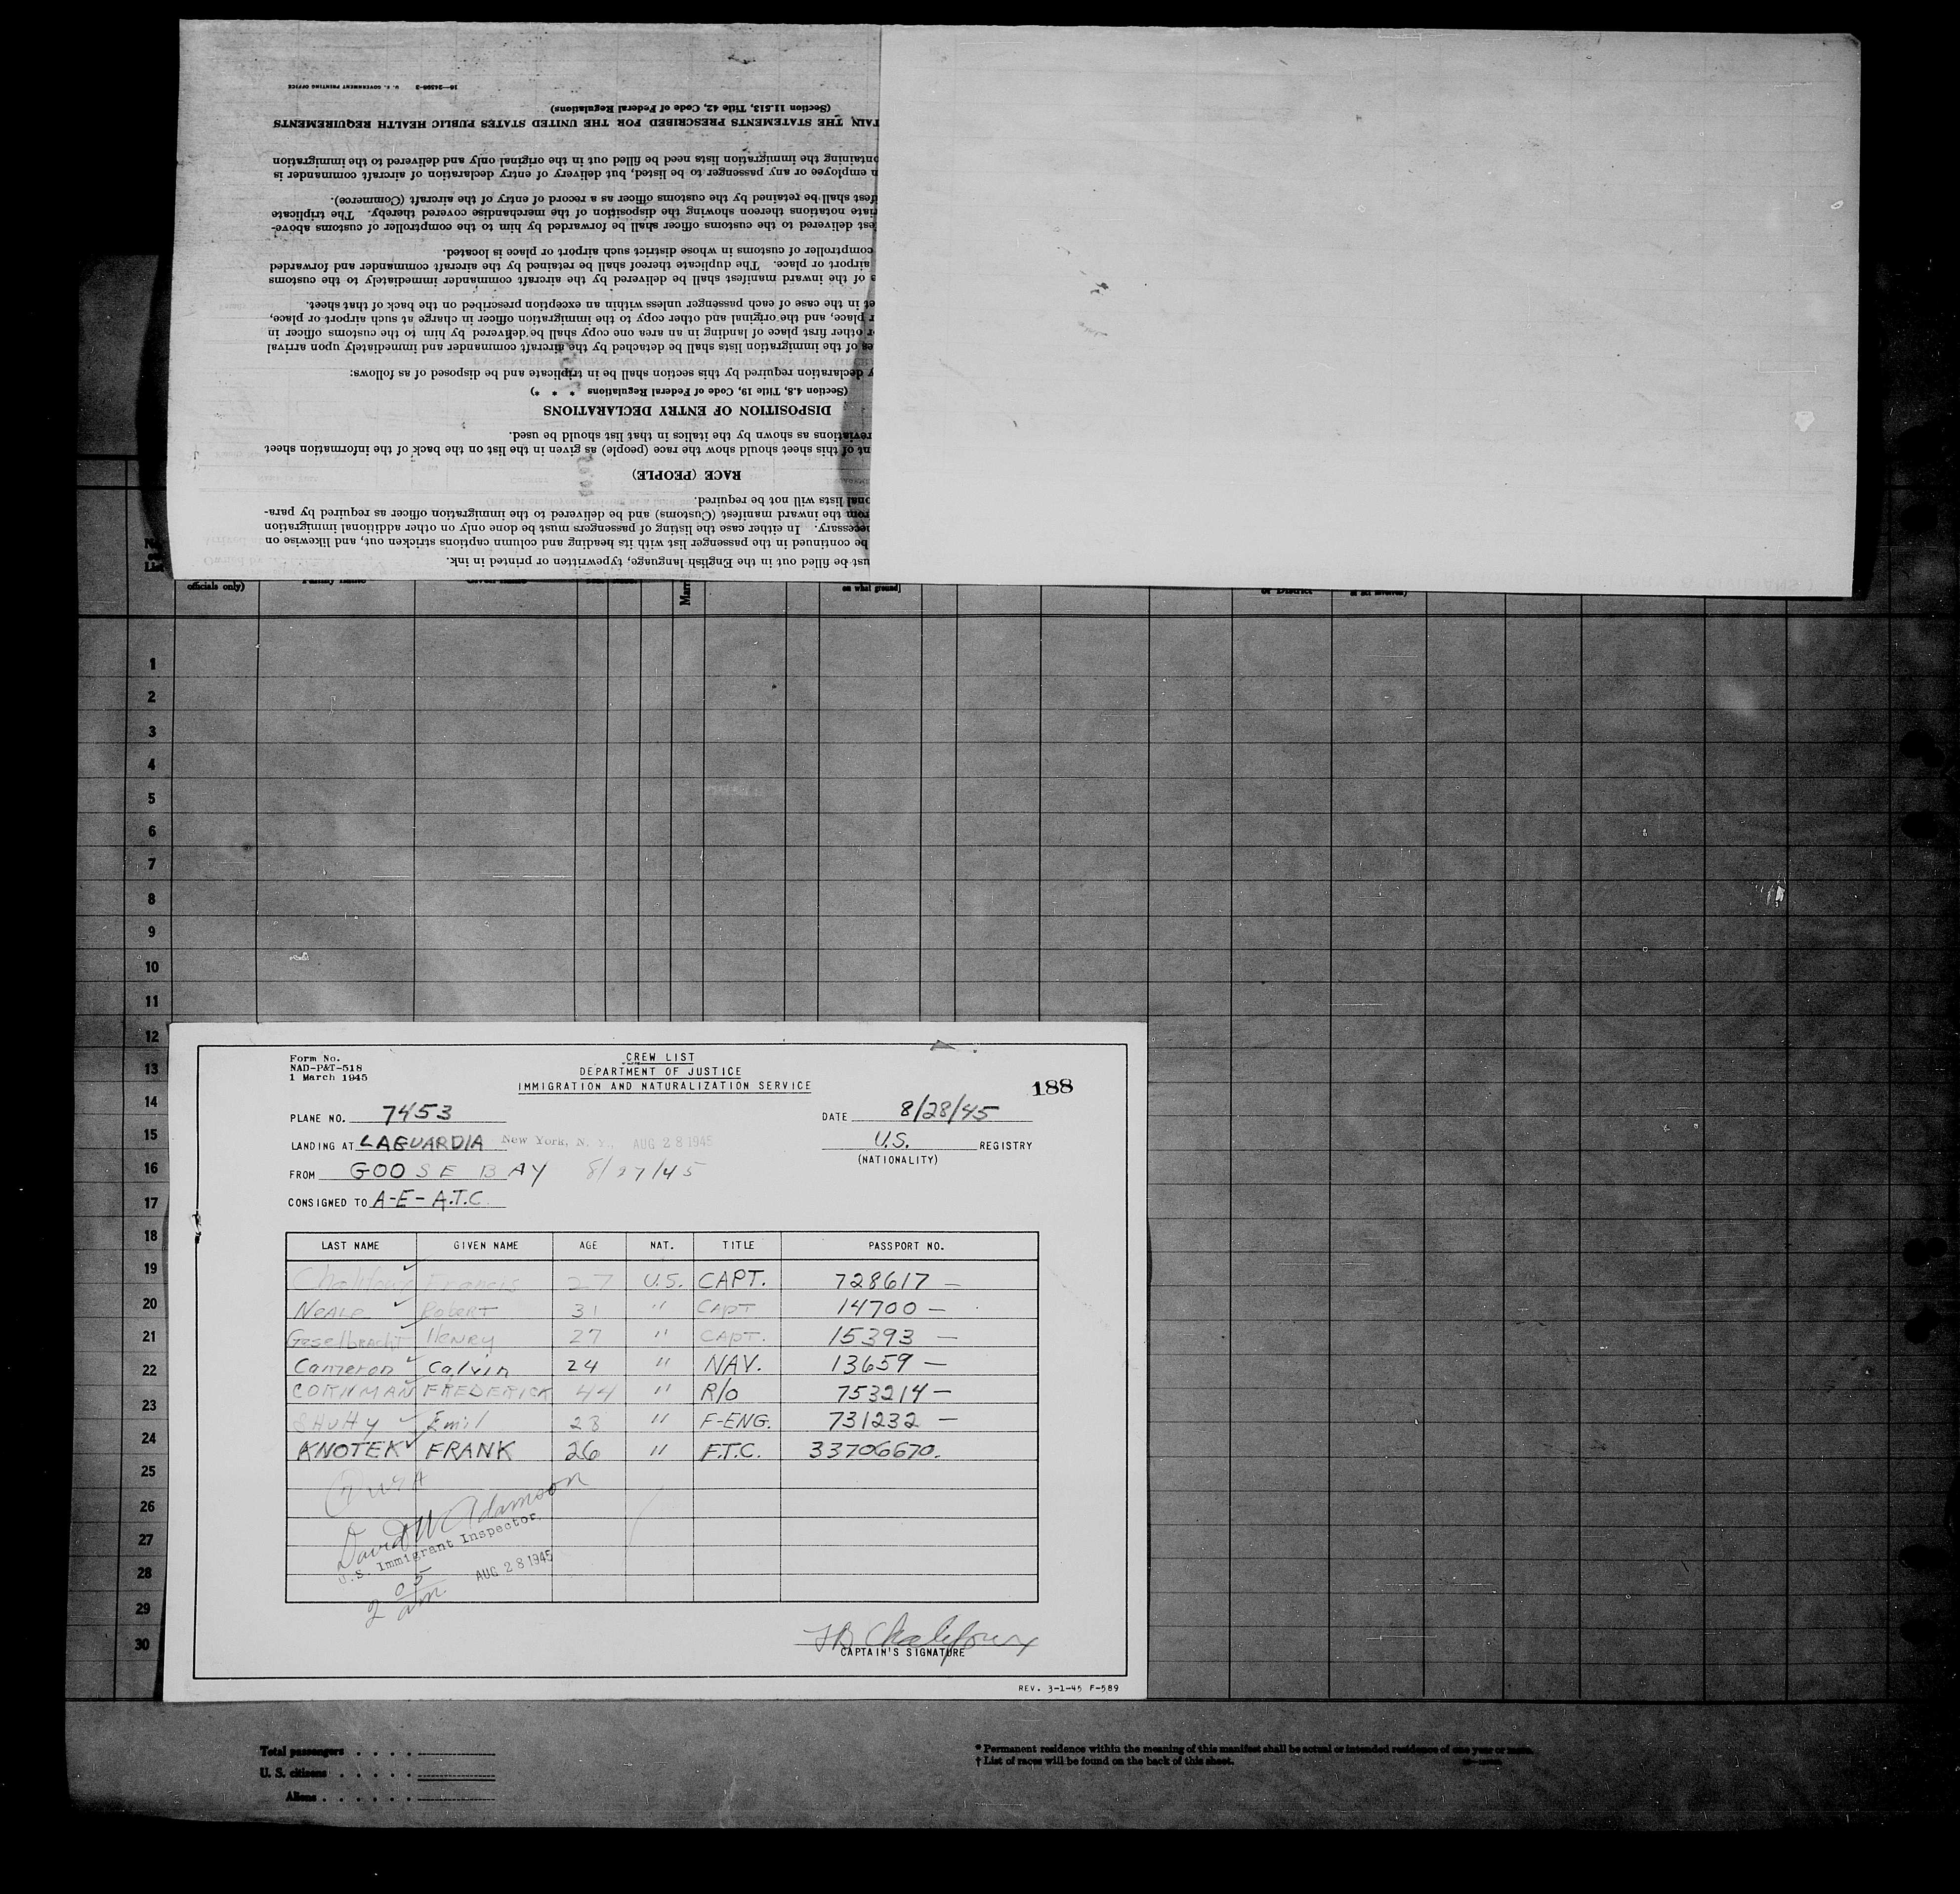 16—24306-2 U. S. GOVERNMENT PRINTING OFFICE
(Section 11.513, Title 42, Code of Federal Regulations)
THE STATEMENTS PRESCRIBED FOR THE UNITED STATES PUBLIC HEALTH REQUIREMENTS
containing the immigration lists need be filled out in the original only and delivered to the immigration
employee or any passenger to be listed, but delivery of entry declaration of aircraft commander is
shall be retained by the customs officer as a record of entry of the aircraft (Commerce).
notations thereon showing the disposition of the merchandise covered thereby. The triplicate
delivered to the customs officer shall be forwarded by him to the comptroller of customs above-
comptroller of customs in whose district such airport or place is located.
airport or place. The duplicate thereof shall be retained by the aircraft commander and forwarded
of the inward manifest shall be delivered by the aircraft commander immediately to the customs
in the case of each passenger unless within an exception prescribed on the back of that sheet.
place, and the original and other copy to the immigration officer in charge at such airport or place,
other first place of landing in an area one copy shall be delivered by him to the customs officer in
of the immigration lists shall be detached by the aircraft commander and immediately upon arrival
declaration required by this section shall be in triplicate and be disposed of as follows:
(Section 4.8, Title 19, Code of Federal Regulations * * *)
DISPOSITION OF ENTRY DECLARATIONS
as shown by the italics in that list should be used.
of this sheet should show the race (people) as given in the list on the back of the information sheet
RACE (PEOPLE)
lists will not be required.
from the inward manifest (Customs) and be delivered to the immigration officer as required by para-
In either case the listing of passengers must be done only on other additional immigration
be continued in the passenger list with its heading and column captions stricken out, and likewise on
be filled out in the English language, typewritten or printed in ink.
officials only) on what ground] of District
1
2
3
4
5
6
7
8
9
10
11
12
13
14
15
16
17
18
19
20
21
22
23
24
25
26
27
28
29
30
Form No.
NAD-P&T-518
1 March 1945
CREW LIST
DEPARTMENT OF JUSTICE
IMMIGRATION AND NATURALIZATION SERVICE
188
PLANE NO. 7453 DATE 8/28/45
LANDING AT LAGUARDIA New York, N. Y., AUG 28 1945 U.S. REGISTRY
(NATIONALITY)
FROM GOOSE BAY 8/27/45
CONSIGNED TO A-E-A.T.C.
LAST NAME GIVEN NAME AGE NAT. TITLE PASSPORT NO.
Chalifoux Francis 27 U.S. CAPT. 728617 —
Neale Robert 31 " CAPT 14700 —
Geselbracht Henry 27 " CAPT. 15393 —
Cameron Calvin 24 " NAV. 13659 —
CORNMAN FREDERICK 44 " R/O 753214 —
SHUHY Emil 28 " F-ENG. 731232 —
KNOTEK FRANK 26 " F.T.C. 33706670.
David W Adamson
U.S. Immigrant Inspector
AUG 28 1945
2 05 am
CAPTAIN'S SIGNATURE
REV. 3-1-45 F-589
Total passengers . . . .
U. S. citizens . . . . .
Aliens . . . . . .
* Permanent residence within the meaning of this manifest shall be actual or intended residence of one year or more.
† List of races will be found on the back of this sheet.